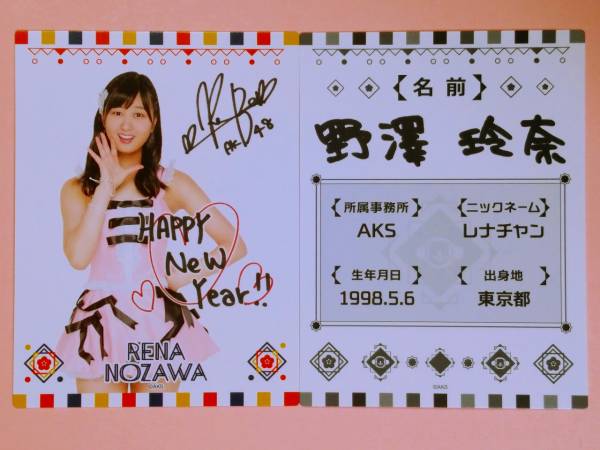 AKB48
HAPPY
New
Year!!
RENA
NOZAWA
©AKS
【名前】
野澤 玲奈
【所属事務所】
AKS
【ニックネーム】
レナチャン
【生年月日】
1998.5.6
【出身地】
東京都
©AKS